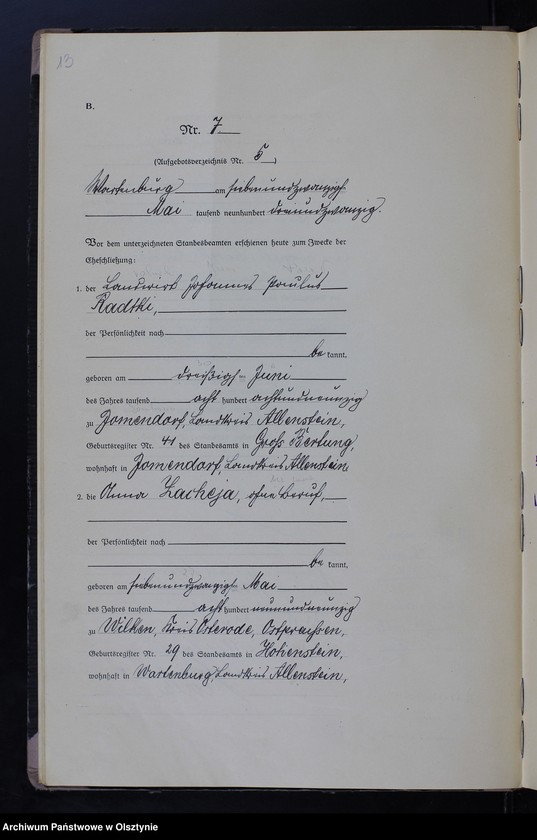 13
B.
Nr. 7
(Aufgebotsverzeichnis Nr. 5)
Wartenburg am siebenundzwanzigsten
Mai tausend neunhundert dreiundzwanzig.
Vor dem unterzeichneten Standesbeamten erschienen heute zum Zwecke der
Eheschließung:
1. der Landwirt Johannes Paulus
Radtki,
der Persönlichkeit nach
be kannt,
geboren am dreißigsten Juni
des Jahres tausend acht hundert achtundneunzig
zu Jomendorf, Landkreis Allenstein,
Geburtsregister Nr. 41 des Standesamts in Groß Bertung,
wohnhaft in Jomendorf, Landkreis Allenstein
2. die Anna Zacheja, ohne Beruf,
der Persönlichkeit nach
be kannt,
geboren am siebenundzwanzigsten Mai
des Jahres tausend acht hundert neunundneunzig
zu Wilken, Kreis Osterode, Ostpreußen,
Geburtsregister Nr. 29 des Standesamts in Hohenstein,
wohnhaft in Wartenburg, Landkreis Allenstein,
Archiwum Państwowe w Olsztynie